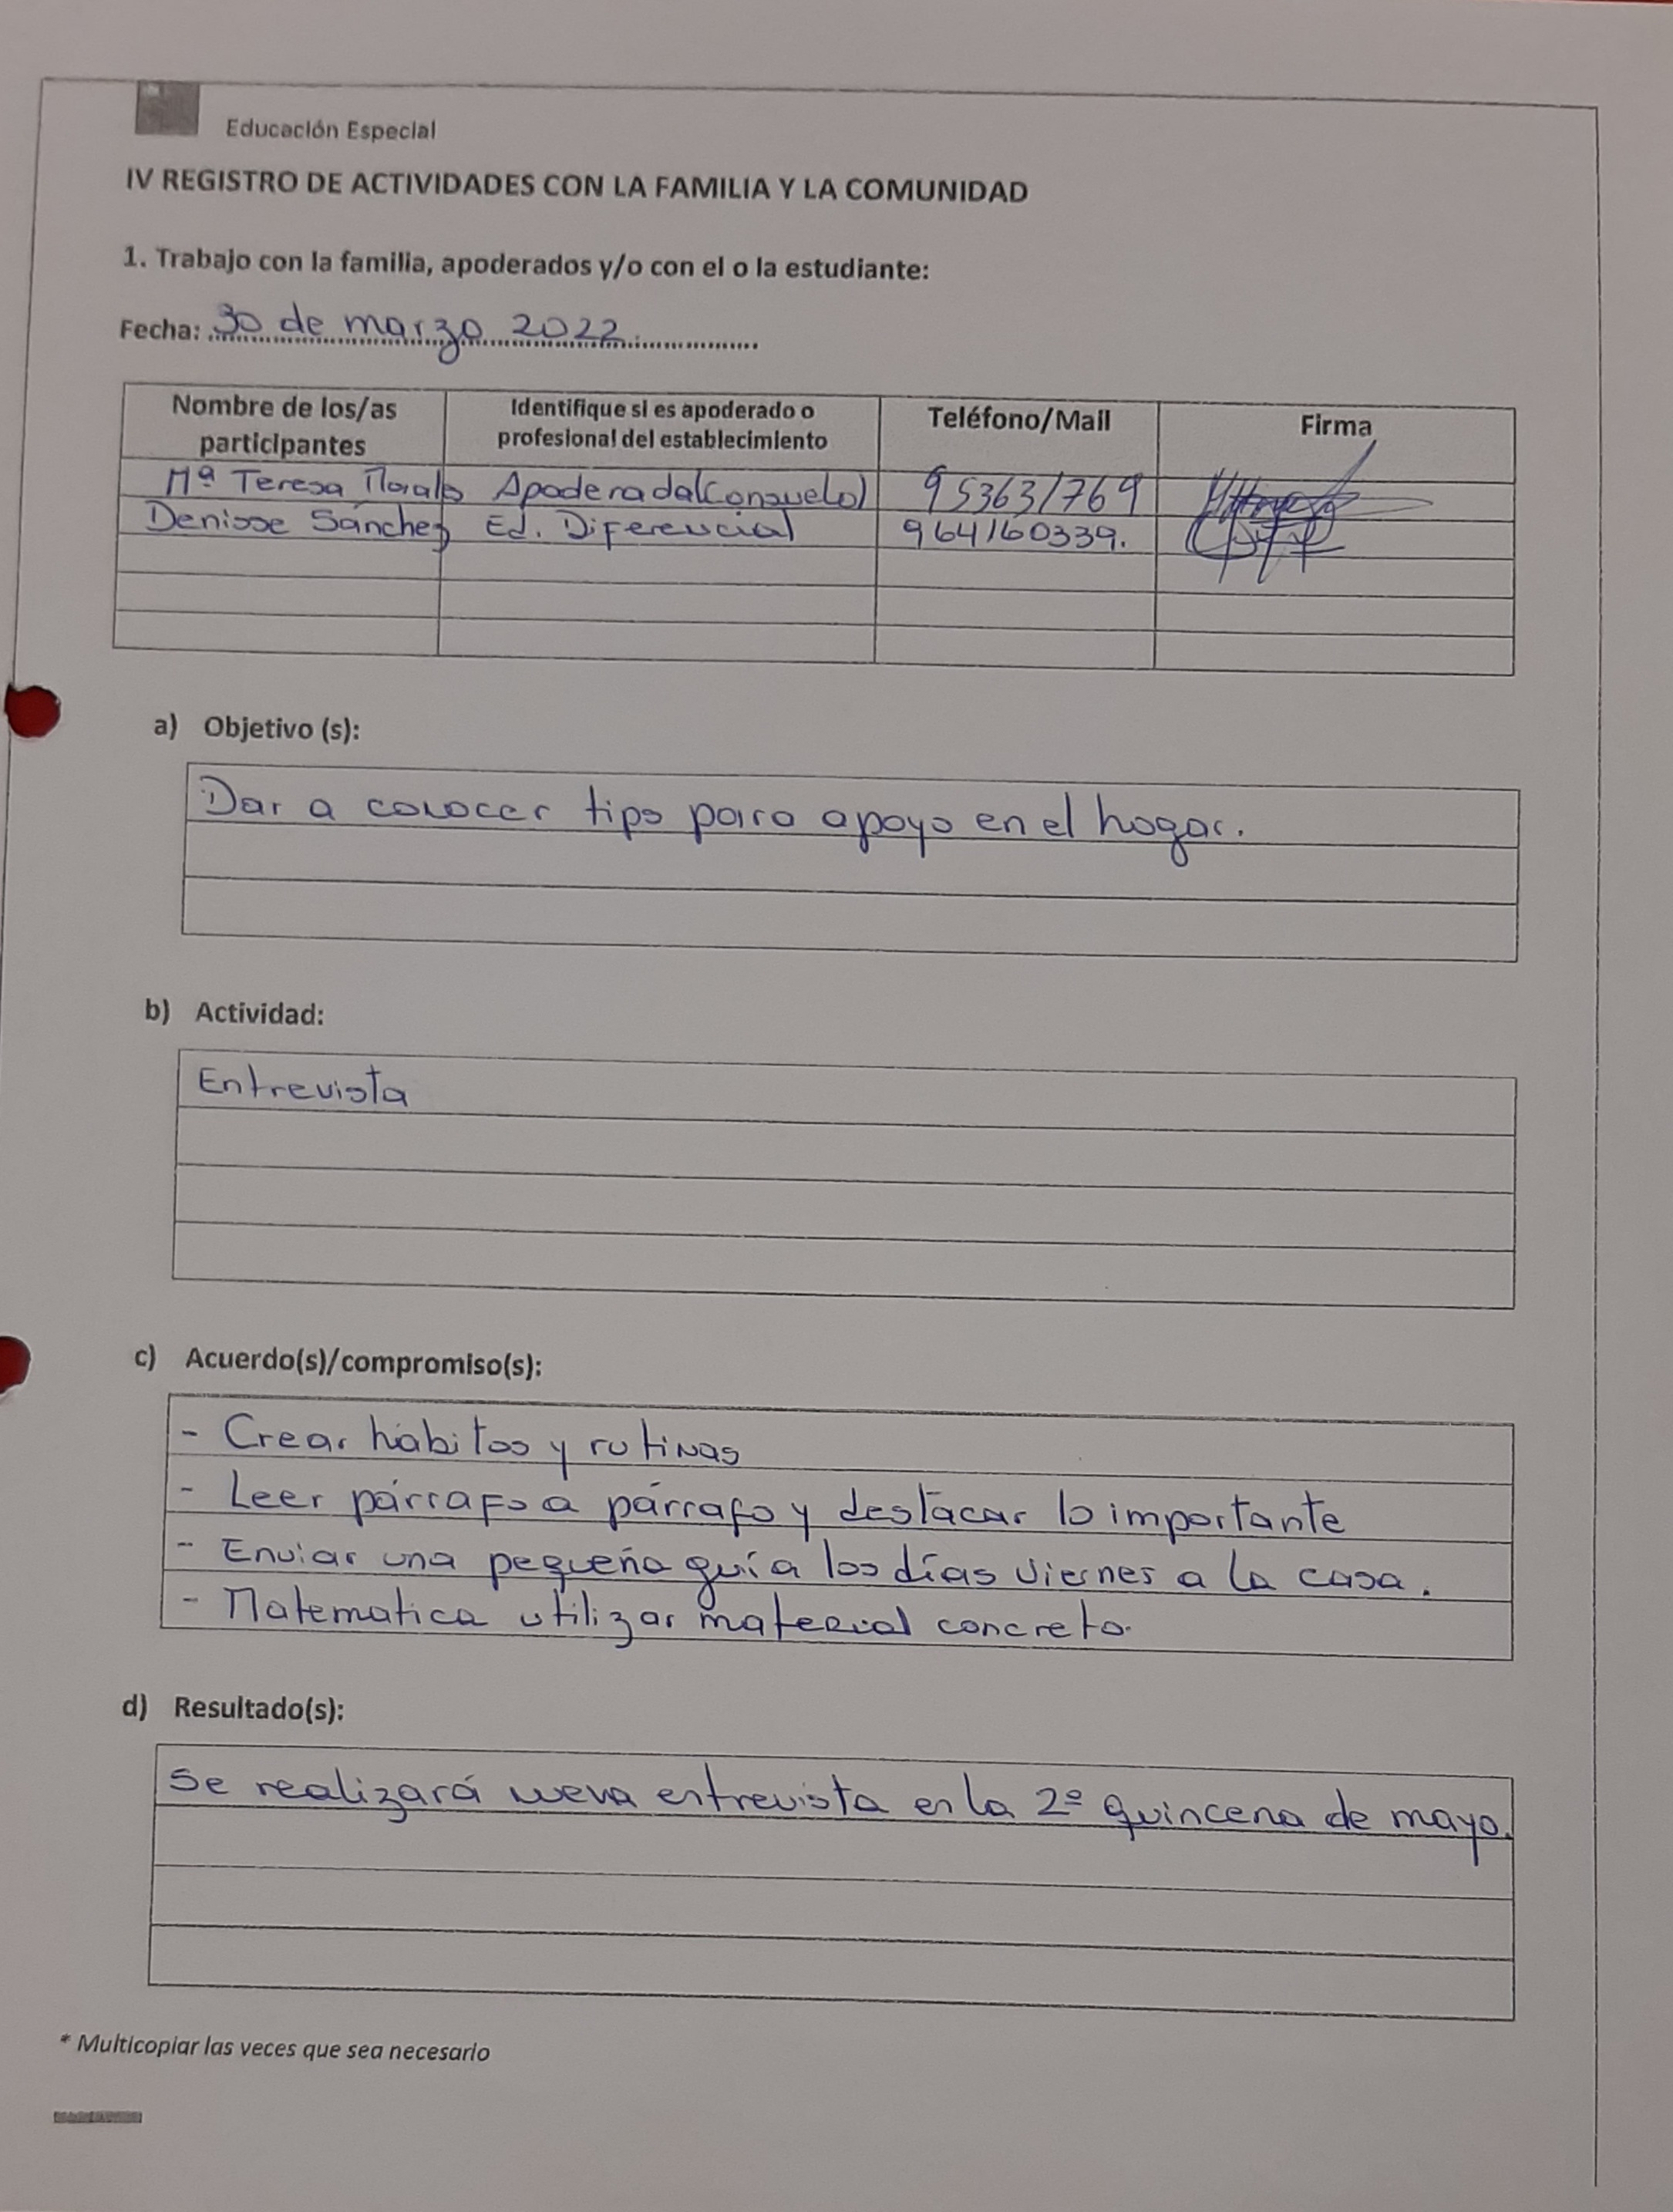 Educación Especial
IV REGISTRO DE ACTIVIDADES CON LA FAMILIA Y LA COMUNIDAD
1. Trabajo con la familia, apoderados y/o con el o la estudiante:
Fecha: 30 de marzo 2022
Nombre de los/as participantes Identifique si es apoderado o profesional del establecimiento Teléfono/Mail Firma
Mª Teresa Morales Apoderada (Consuelo) 953631769
Denisse Sánchez Ed. Diferencial 964160339.
a) Objetivo (s):
Dar a conocer tips para apoyo en el hogar.
b) Actividad:
Entrevista
c) Acuerdo(s)/compromiso(s):
- Crear hábitos y rutinas
- Leer párrafo a párrafo y destacar lo importante
- Enviar una pequeña guía los días viernes a la casa.
- Matematica utilizar material concreto.
d) Resultado(s):
Se realizará nueva entrevista en la 2º quincena de mayo.
* Multicopiar las veces que sea necesario